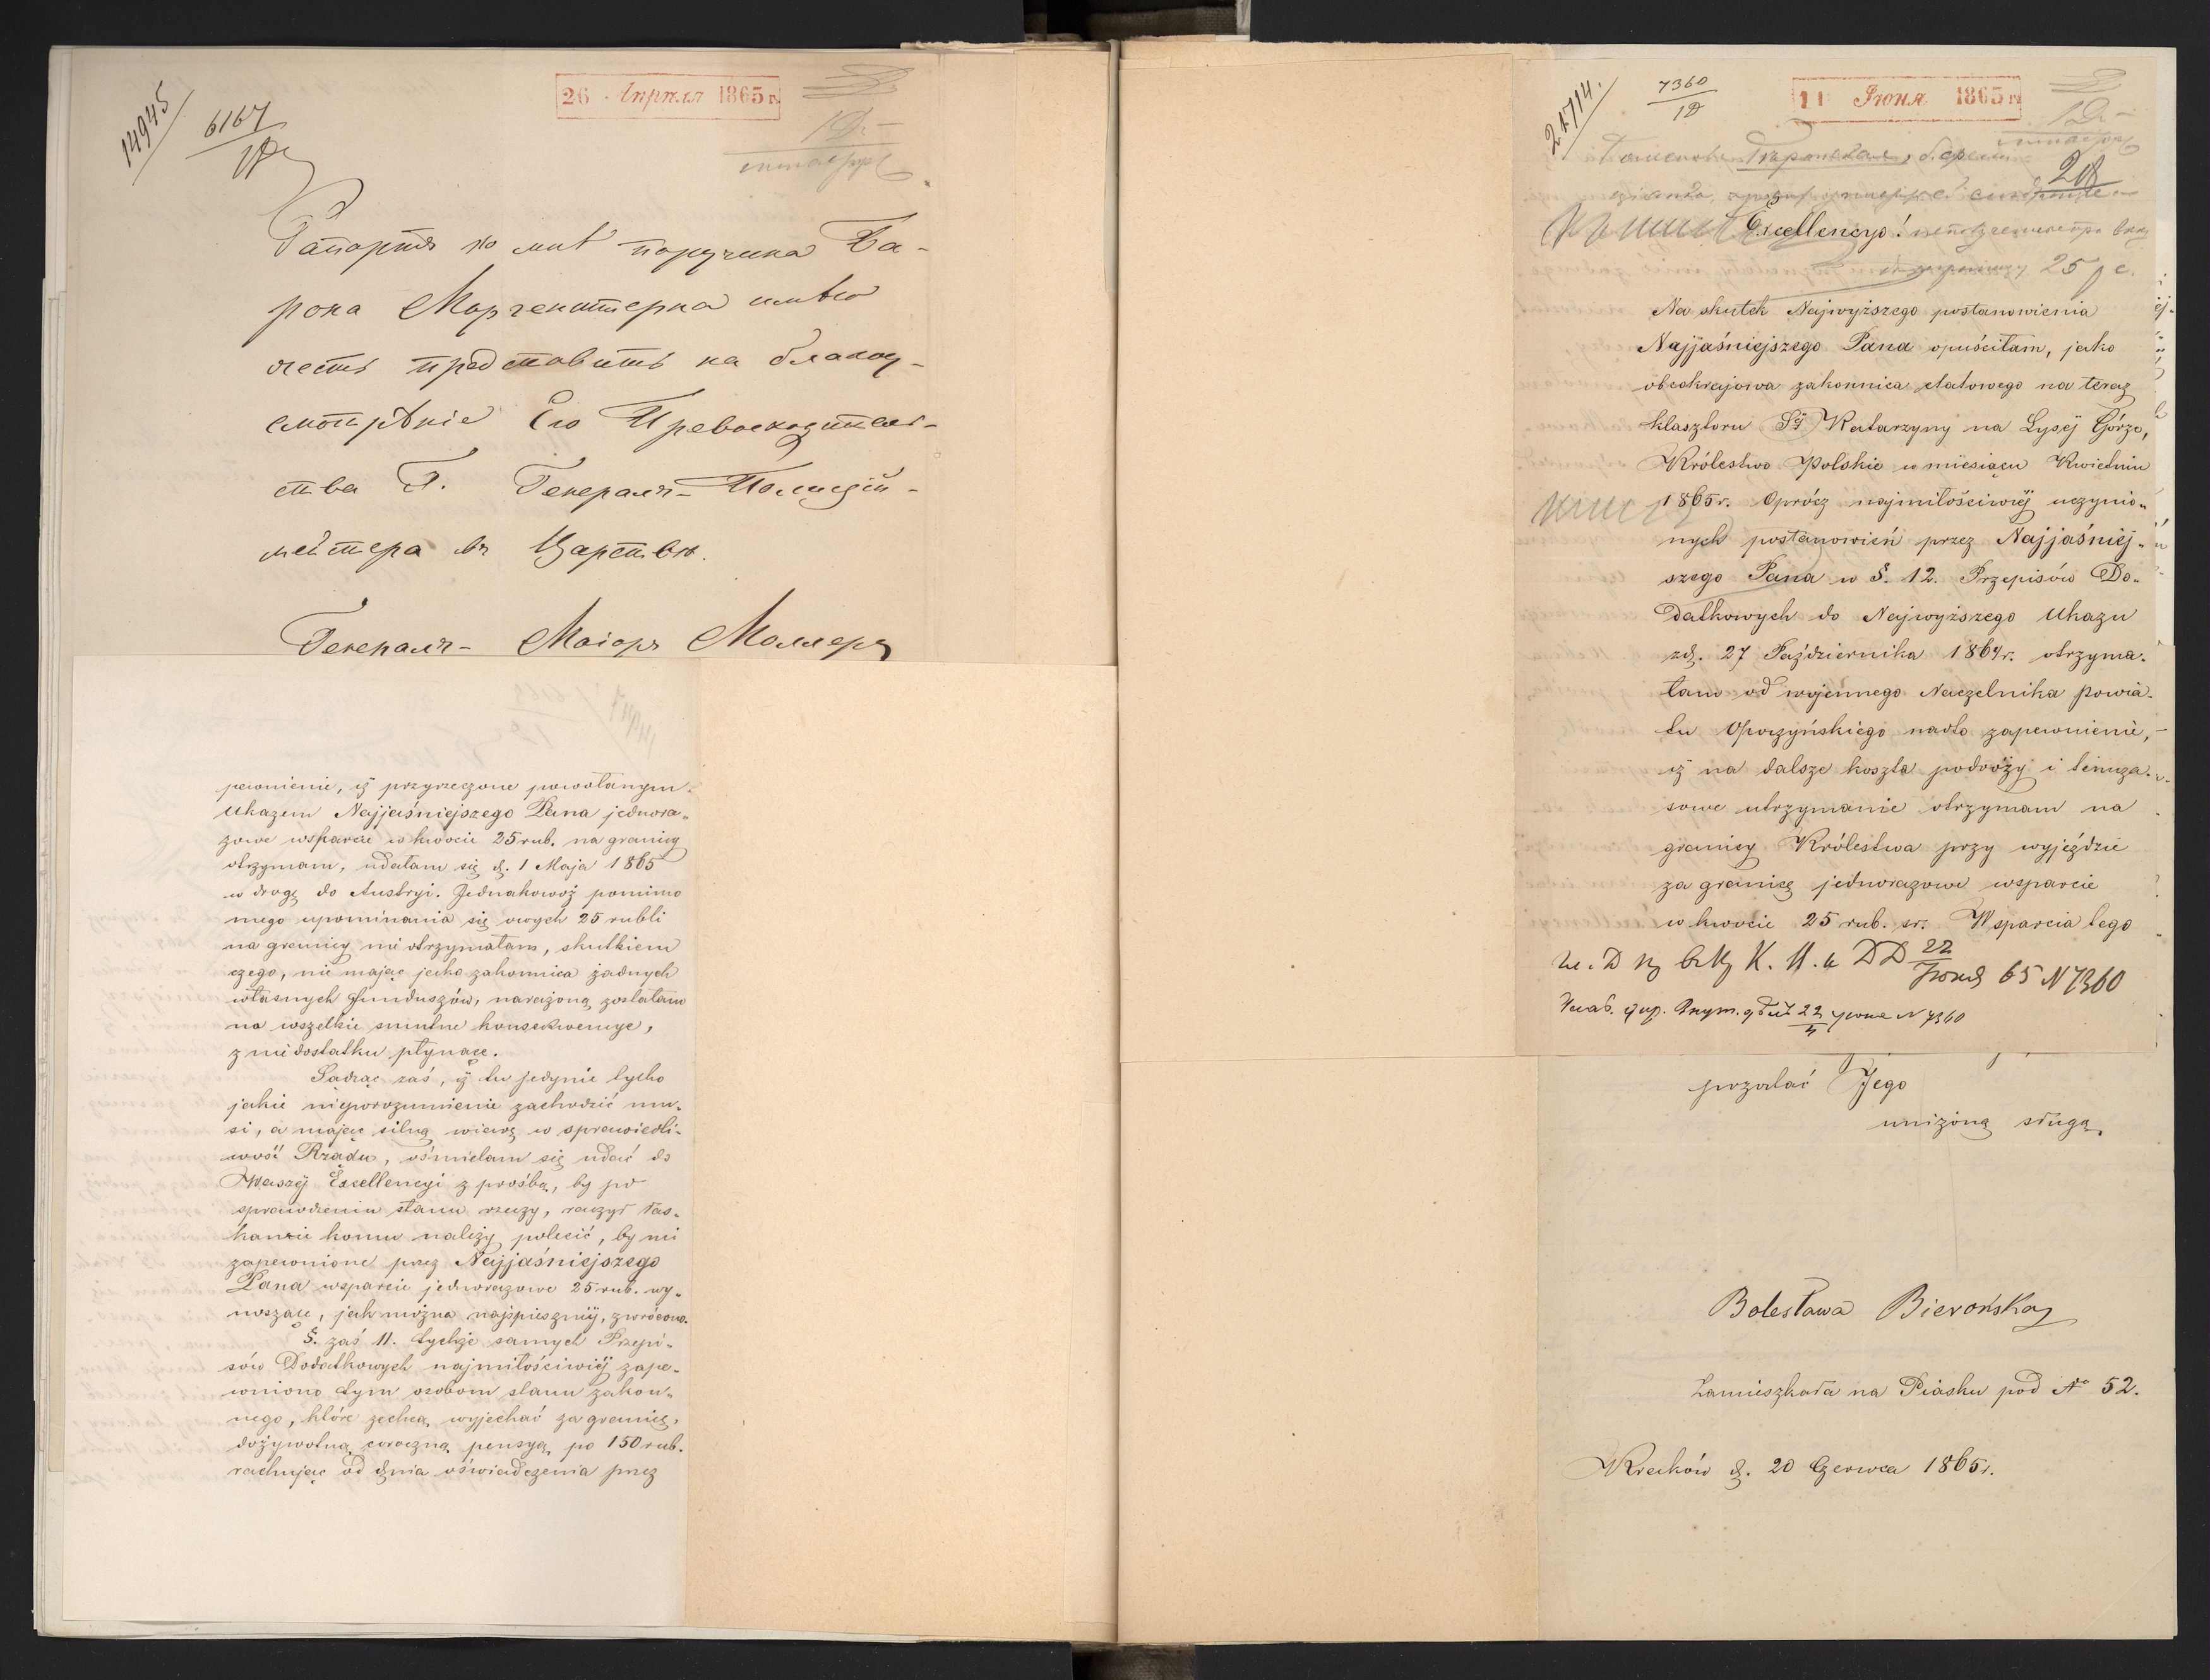 14945
6167
26 Апрѣля 1865 г.
Рапортъ ко мнѣ поручика Ба-
рона Моргенштерна имѣю
честь представить на благоу-
смотрѣніе Его Превосходитель-
ства Г. Генералъ-Полицій-
мейстера въ Царствѣ.
Генералъ-Маіоръ Моллеръ
pewnienie, iż przyrzeczone powołanym
Ukazem Najjaśniejszego Pana jednora-
zowe wsparcie w kwocie 25 rub. na granicy
otrzymam, udałam się d. 1 Maja 1865
w drogę do Austryi. Jednakowoż pomimo
mego upominania się owych 25 rubli
na granicy nie otrzymałam, skutkiem
czego, nie mając jako zakonnica żadnych
własnych funduszów, narażoną zostałam
na wszelkie smutne konsekwencye,
z niedostatku płynące.
Sądząc zaś, iż tu jedynie tylko
jakie nieporozumienie zachodzić mu-
si, a mając silną wiarę w sprawiedli-
wość Rządu, ośmielam się udać do
Waszéj Excellencyi z prośbą, by po
sprawdzeniu stanu rzeczy, raczył łas-
kawie komu należy polecić, by mi
zapewnione przez Najjaśniejszego
Pana wsparcie jednorazowe 25 rub. wy-
noszące, jak można najspieszniéj, zwrócono.
§. zaś 11. tychże samych Przepi-
sów Dodatkowych najmiłościwiéj zape-
wniono tym osobom stanu zakon-
nego, które zechcą wyjechać za granicę,
dożywotną coroczną pensyą po 150 rub.
rachując od dnia oświadczenia przez
7360
11 Іюня 1865 г.
Excellencyo!
25 р с.
Na skutek Najwyższego postanowienia
Najjaśniejszego Pana opuściłam, jako
obcokrajowa zakonnica etatowego na teraz
klasztoru Sj Katarzyny na Łyséj Górze,
Królestwo Polskie w miesiącu Kwietniu
1865 r. Oprócz najmiłościwiéj uczynio-
nych postanowień przez Najjaśniej-
szego Pana w §. 12. Przepisów Do-
datkowych do Najwyższego Ukazu
zd. 27 Października 1864 r. otrzyma-
łam od wojennego Naczelnika powia-
tu Opoczyńskiego nadto zapewnienie,
iż na dalsze koszta podróży i tymcza-
sowe utrzymanie otrzymam na
granicy Królestwa przy wyjeździe
za granicę jednorazowe wsparcie
w kwocie 25 rub. sr. Wsparcia tego
22
Іюня 65 N 7360
N 7360
pozostać Jego
uniżoną sługą,
Bolesława Bierońska
Zamieszkała na Piasku pod No 52.
Kraków d. 20 Czerwca 1865 r.